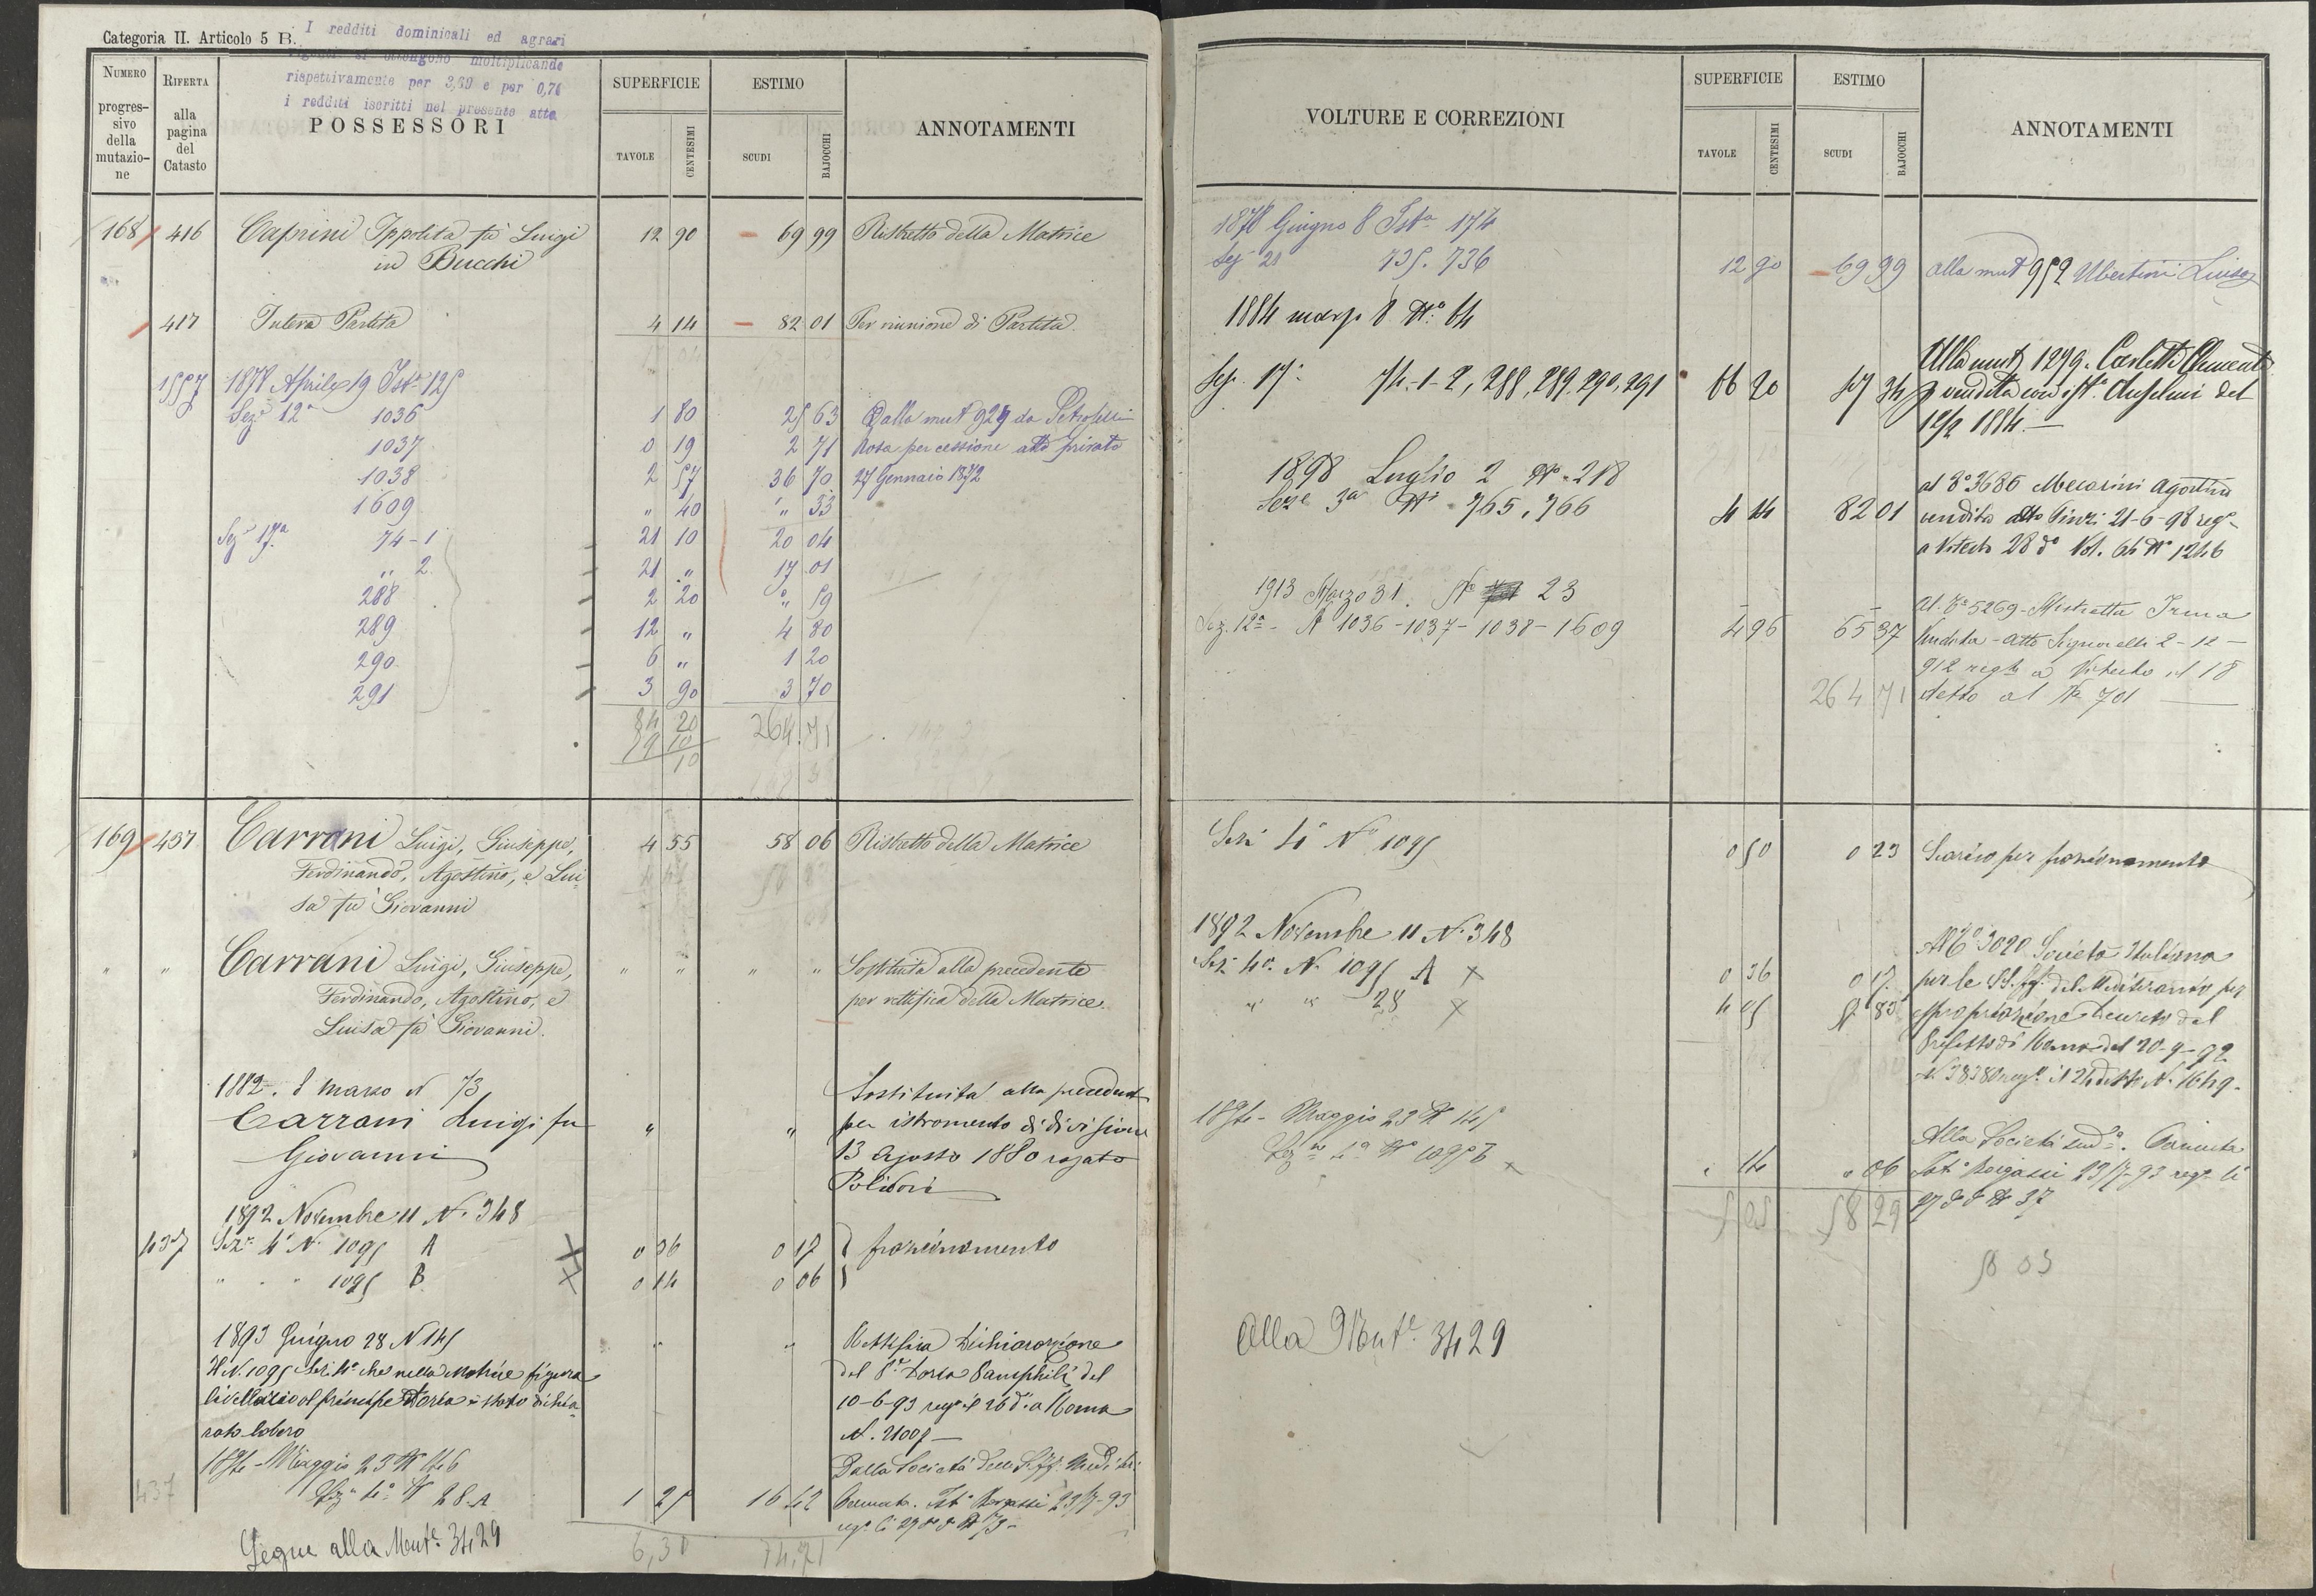 Categoria II. Articolo 5 B.
I redditi dominicali ed agrari
vigenti si ottengono moltiplicando
rispettivamente per 3,69 e per 0,76
i redditi iscritti nel presente atto
NUMERO progressivo della mutazione
RIFERTA alla pagina del Catasto
POSSESSORI
SUPERFICIE
TAVOLE CENTESIMI
ESTIMO
SCUDI BAJOCCHI
ANNOTAMENTI
168 416 Caprini Ippolita fu Luigi 12 90 69 99 Ristretto della Matrice
in Bucchi
417 Intera Partita 4 14 82 01 Per riunione di Partita
1557 1878 Aprile 19 Ist. 125
Sez. 12a 1036 1 80 25 63 Dalla mut 929 da Petroselli
1037 0 19 2 71 Rosa per cessione atto privato
1038 2 57 36 70 27 Gennaio 1872
1609 " 40 " 33
Sez. 17a 74-1 21 10 20 04
" 2 21 " 17 01
288 2 20 " 59
289 12 " 4 80
290 6 " 1 20
291 3 90 3 70
84 20 264 71
10
169 437 Carrani Luigi, Giuseppe, 4 55 58 06 Ristretto della Matrice
Ferdinando, Agostino, e Lui-
sa fu Giovanni
" " Carrani Luigi, Giuseppe, " " " " Sostituita alla precedente
Ferdinando, Agostino, e per rettifica della Matrice.
Luisa fu Giovanni.
1882. 8 Marzo N 73 Sostituita alla precedente
Carrani Luigi fu " " per istromento di divisione
Giovanni 13 Agosto 1880 rogato
Polidori
1892 Novembre 11 N. 348
437 Sez. 4a N. 1095 A 0 36 0 17 frazionamento
" " 1095 B 0 14 0 06
1893 Giugno 28 N 145 " " Rettifica Dichiarazione
Il N. 1095 Sez. 4a che nella Matrice figura del Pe Doria Pamphili del
livellario al principe Doria è stato dichia- 10-6-93 a Roma
rato libero N. 21005
1894 - Maggio 23 N 146 Dalla Società delle
437 Sez. 4a N 28 A 1 25 16 42 23/7-93
Segue alla Mute 3429
6,30 74,71
VOLTURE E CORREZIONI
SUPERFICIE
TAVOLE CENTESIMI
ESTIMO
SCUDI BAJOCCHI
ANNOTAMENTI
1878 Giugno 8 Ista 174
Sez 21 735. 736 12 90 69 99 alla mut 952 Ubertini Luisa
1884 marzo 8 No 64
Sez. 17a 74-1-2, 288, 289, 290, 291 66 20 47 34 Alla mut 1279. Carletti Clemente
p vendita con ist. Anselmi del
12/2 1884.
1898 Luglio 2 No 218
Seze 3a Ni 765, 766 4 14 82 01 al 3686 Mecarini Agostino
vendita atto Pinzi 21-6-98 rego
a Viterbo 28 do Vol. 64 No 1246
1913 Marzo 31. No 23
Sez. 12a - N 1036-1037-1038-1609 4 96 65 37 al. 5269 - Mistretta Irma
Vendita - atto Signorelli 2-12-
912 regto a Viterbo il 18
264 71 detto al No 701
Sez 4a No 1095 0 50 0 23 Scarico per frazionamento
1892 Novembre 11 N. 348
Sez. 4a. N. 1095 A × 0 36 0 17 Al 3020 Società Italiana
" " 28 × 4 05 57 83 per le SS. ff. del Mediterraneo per
espropriazione Decreto del
Prefetto di Roma del 20-9-92
1894 - Maggio 23 N 145
Sezne 4a No 1095 B × " 14 " 06 Alla Società sudda.
23/7-93
5 05 58 29 27 N 37
58 03
Alla Mute 3429